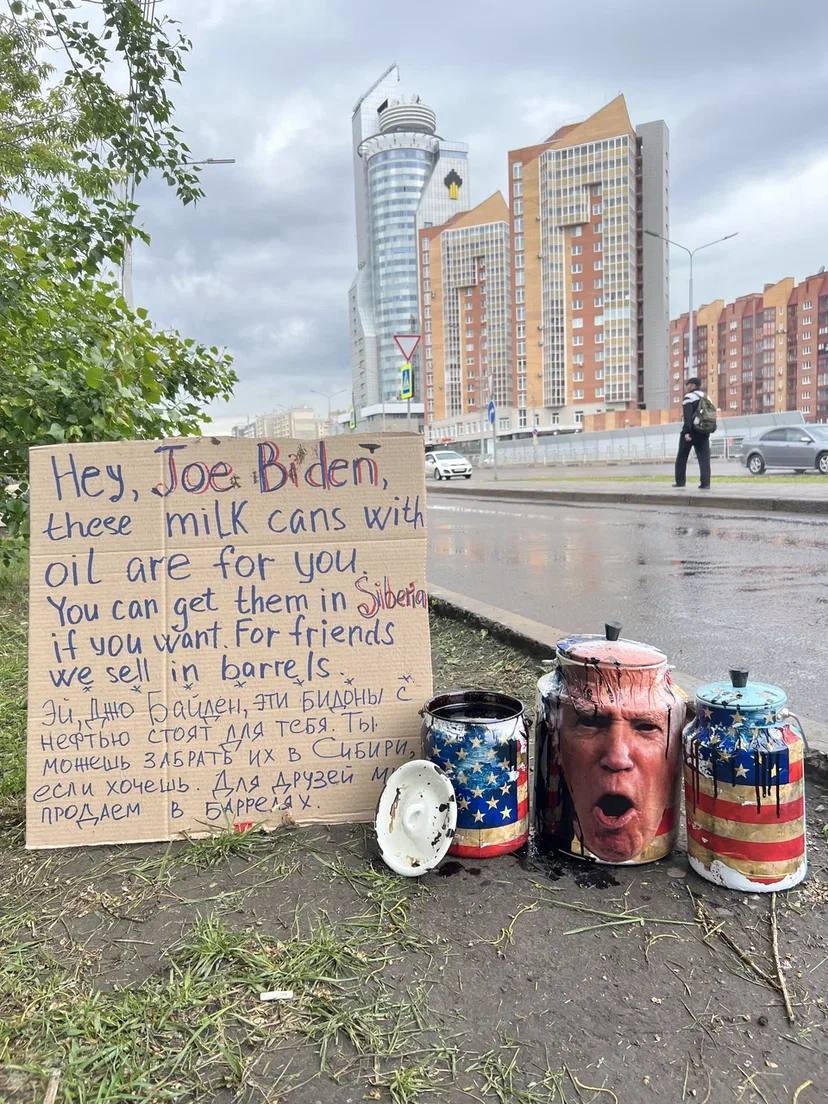 Hey, Joe Biden,
these milk cans with
oil are for you.
You can get them in Siberia
if you want. For friends
we sell in barrels.
Эй, Джо Байден, эти бидоны с
нефтью стоят для тебя. Ты
можешь забрать их в Сибири,
если хочешь. Для друзей мы
продаем в баррелях.